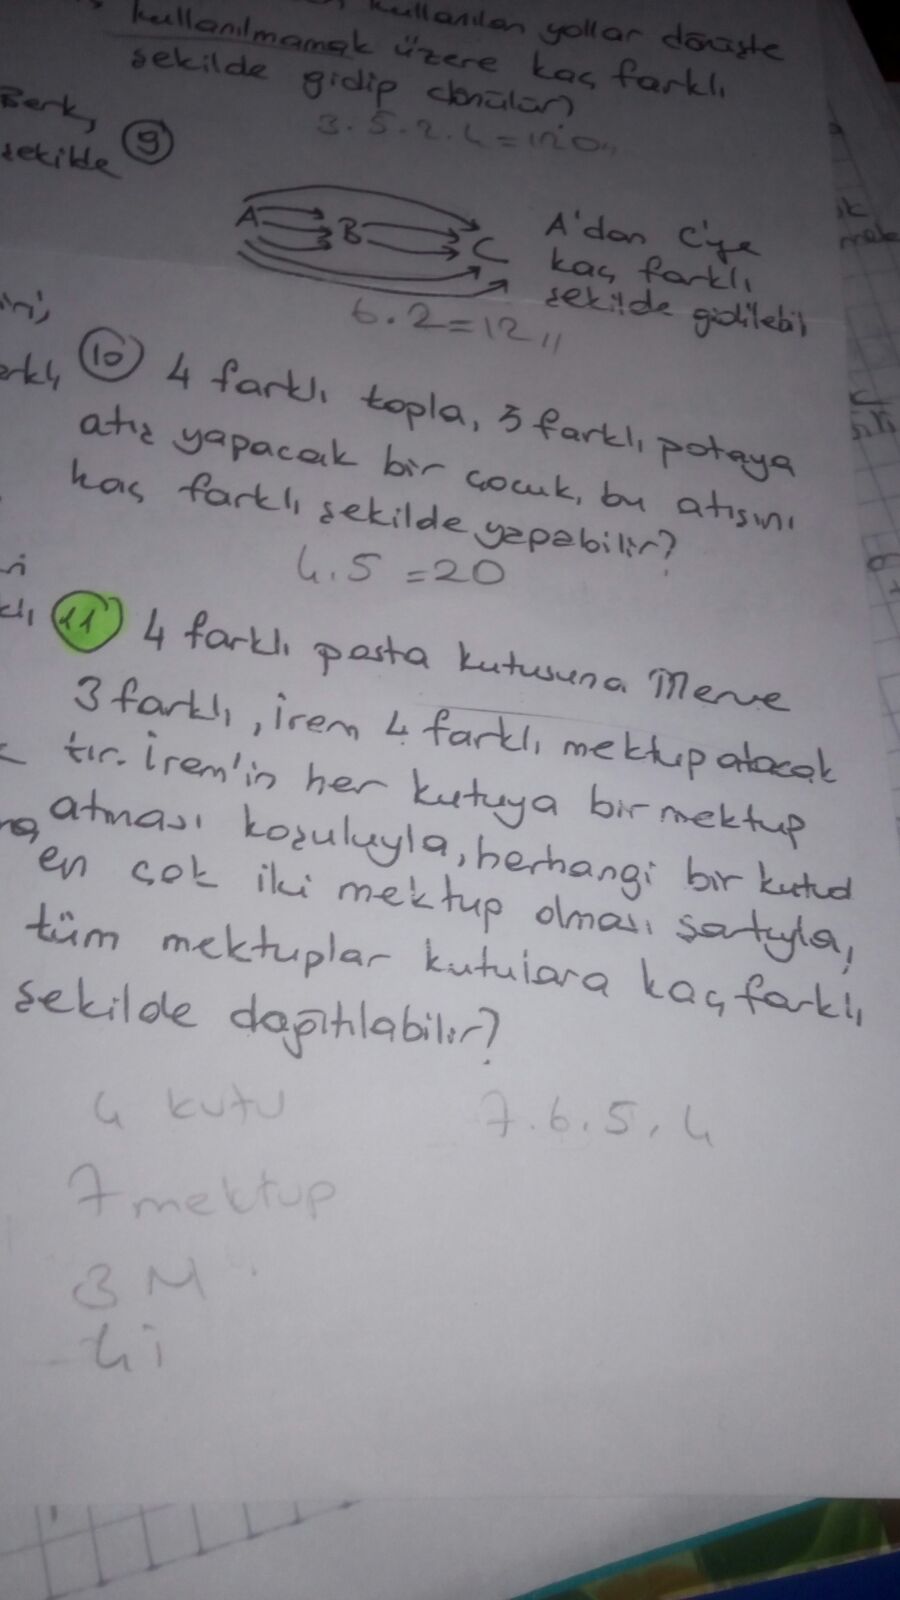 kullanılan yollar dönüşte
kullanılmamak üzere kaç farklı
şekilde gidip dönülür?
3.5.2.4=120,,
Berk,
şekilde
9
A B C
A'dan C'ye
kaç farklı
şekilde gidilebil
6.2=12,,
10 4 farklı topla, 5 farklı potaya
atış yapacak bir çocuk, bu atışını
kaç farklı şekilde yapabilir?
4.5=20
11 4 farklı posta kutusuna Merve
3 farklı, irem 4 farklı mektup atacak
tır. İrem'in her kutuya bir mektup
atması koşuluyla, herhangi bir kutud
en çok iki mektup olması şartıyla,
tüm mektuplar kutulara kaç farklı
şekilde dağıtılabilir?
4 kutu 7.6.5.4
7 mektup
3 M
4 i